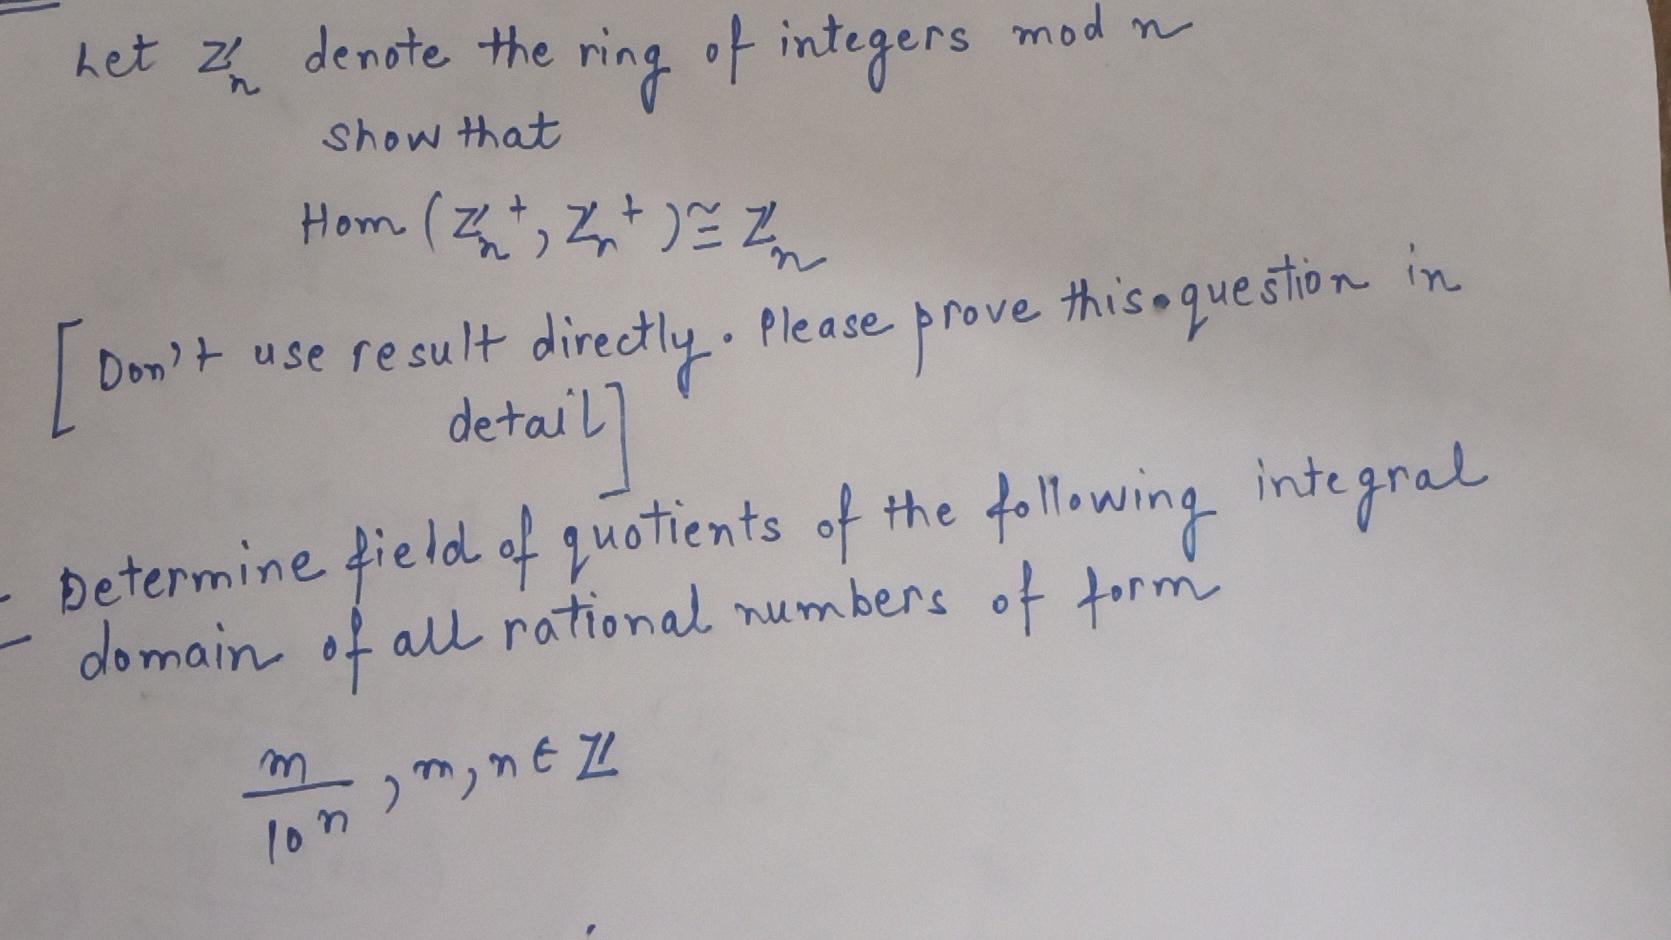 Let ℤn denote the ring of integers mod n
show that
Hom (ℤn⁺, ℤn⁺) ≅ ℤn
[Don't use result directly. Please prove this question in
detail]
Determine field of quotients of the following integral
domain of all rational numbers of form
m/10ⁿ, m, n ∈ ℤ